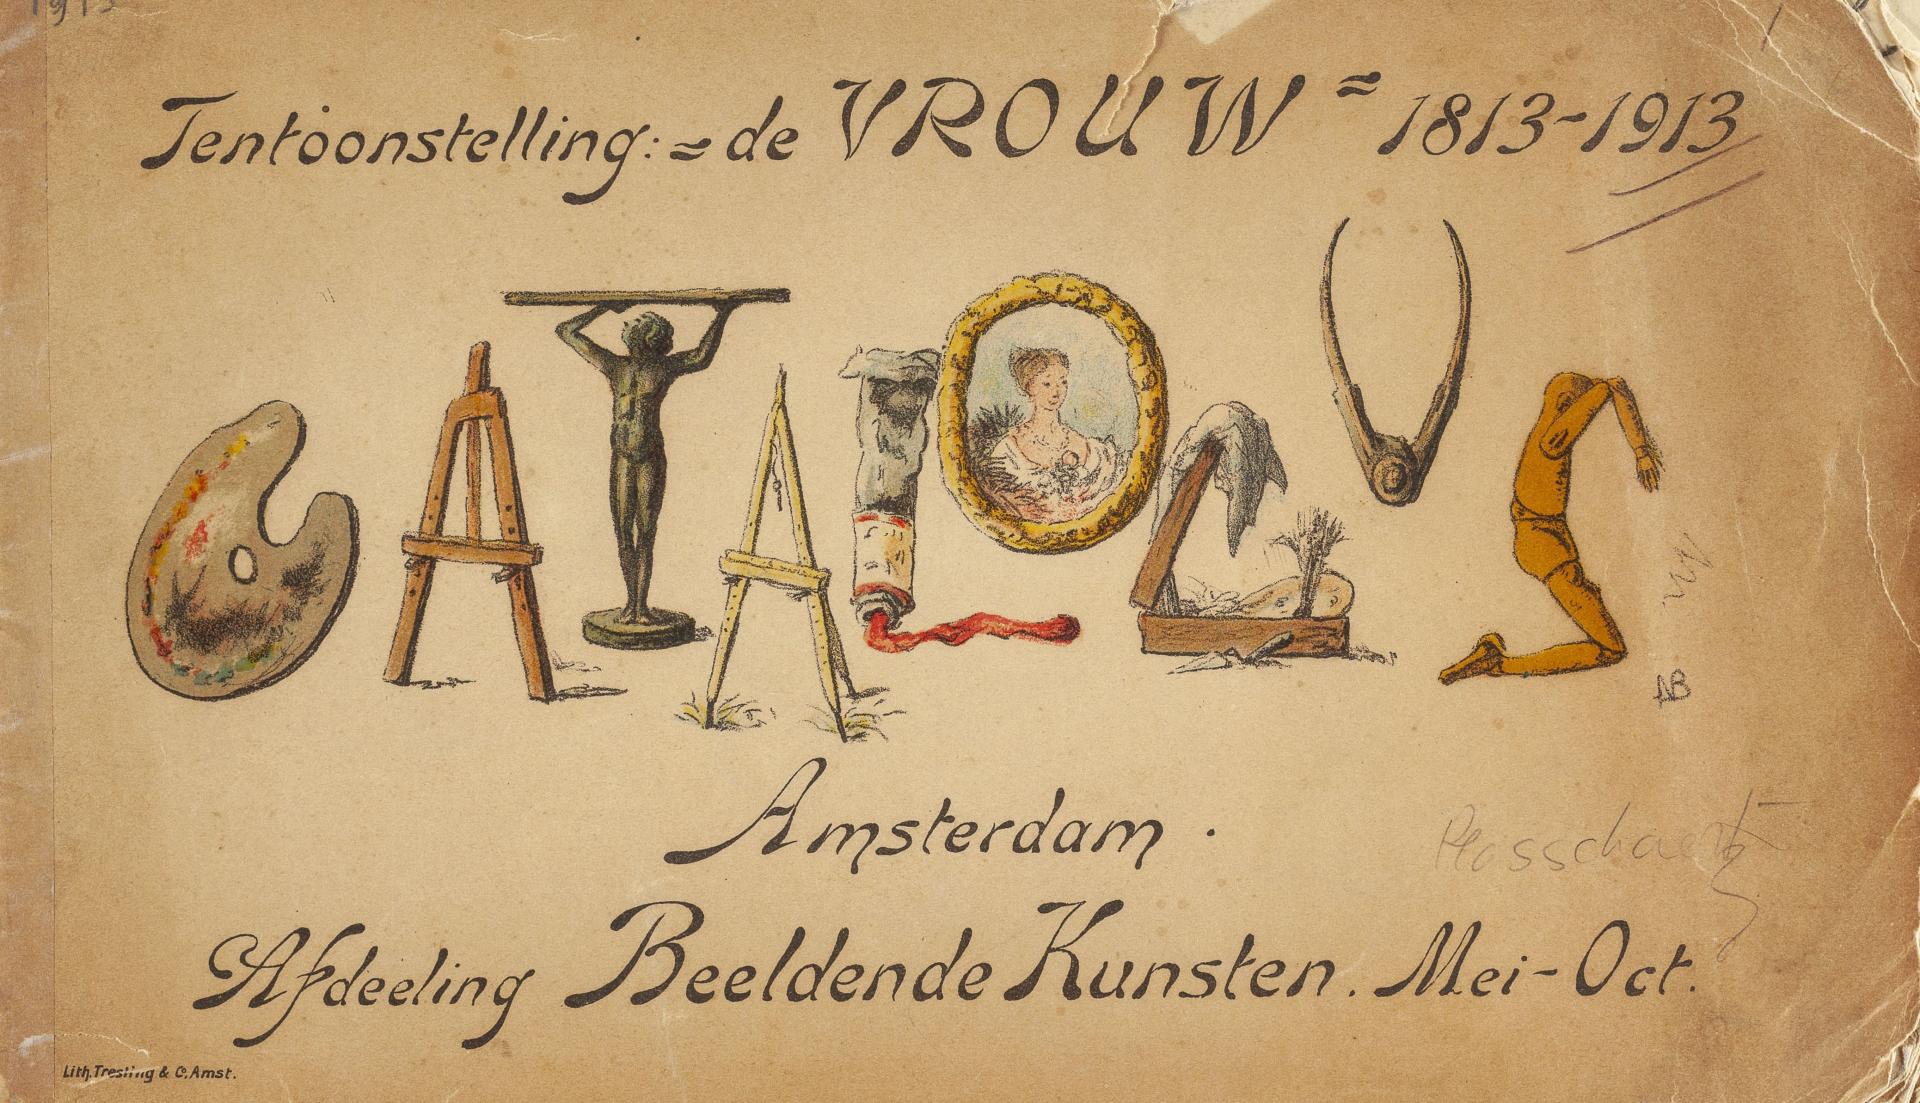 1913
Tentoonstelling: = de VROUW = 1813-1913
CATALOGUS
AB
Amsterdam.
Plasschaert
Afdeeling Beeldende Kunsten. Mei-Oct.
Lith. Tresling & Co. Amst.